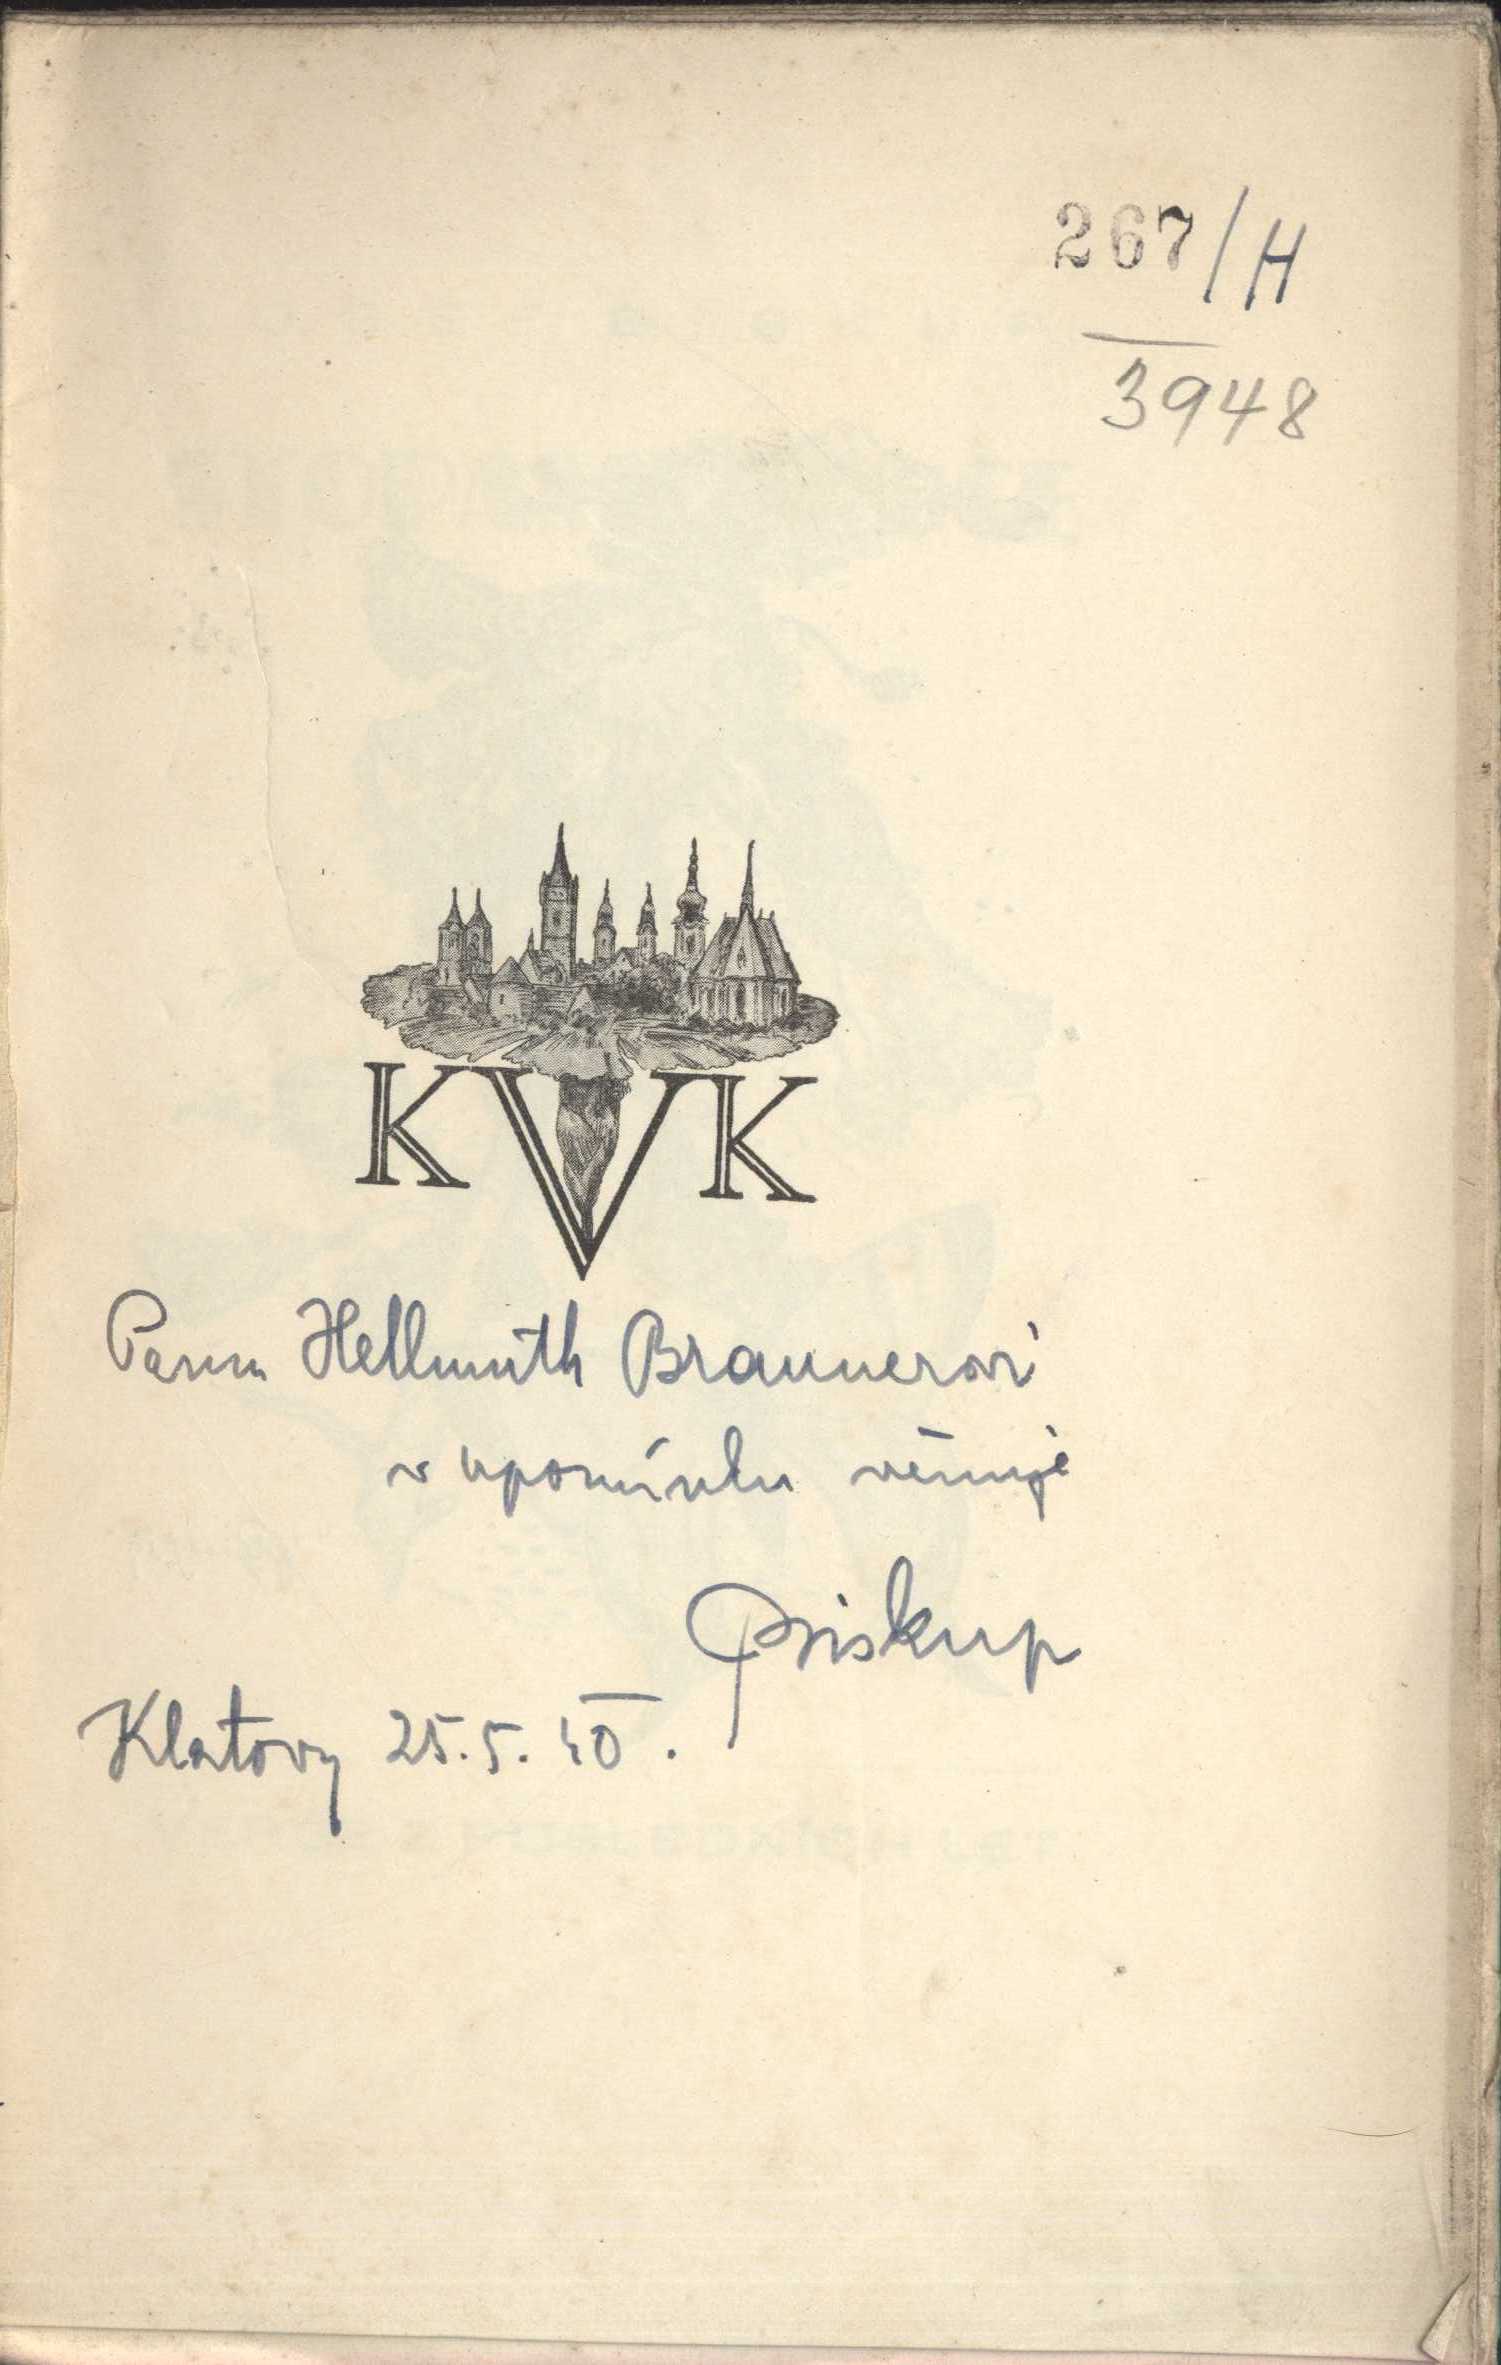 267/H
3948
KVK
Panu Hellmuth Braunerovi
v upomínku věnuje
Klatovy 25.5.40.